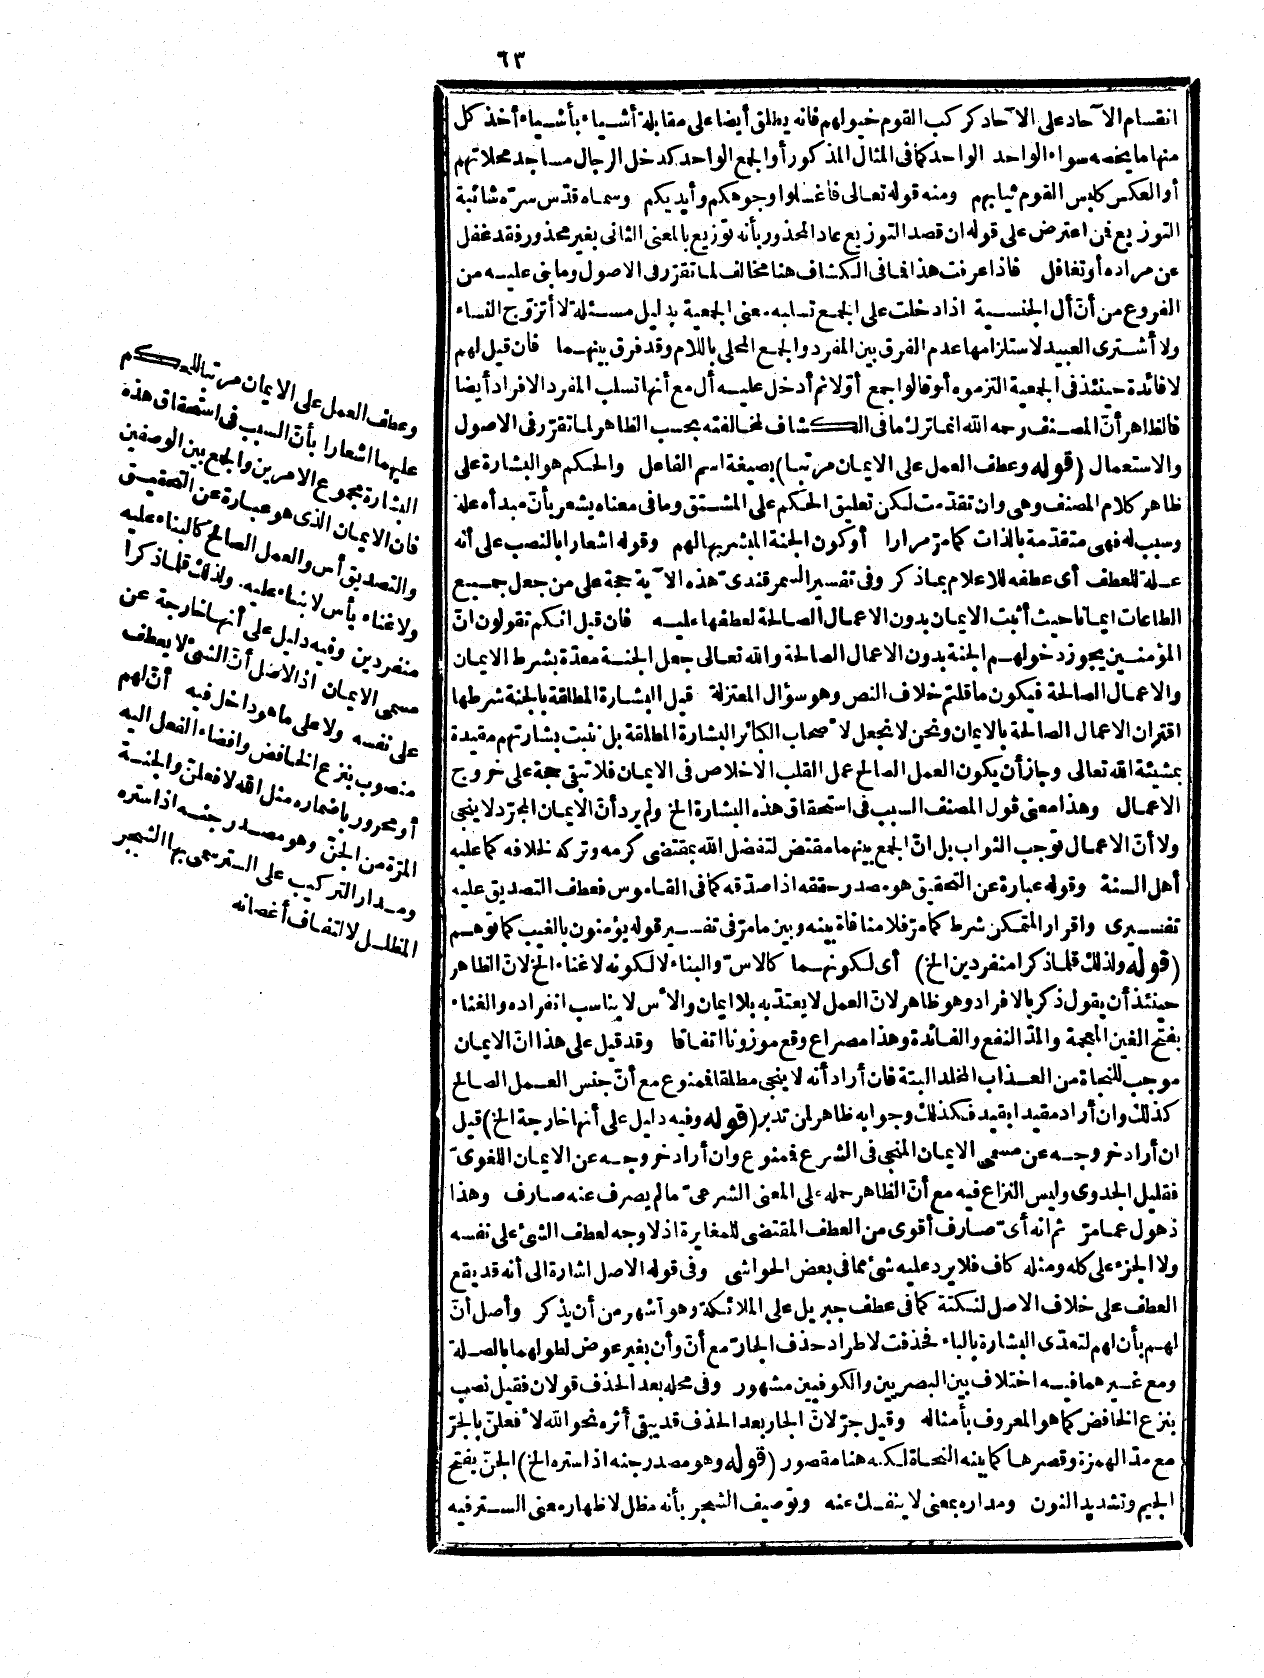 ٦٣
انقسام الآحاد على الآحاد كركب القوم خيولهم فانه يطلق أيضا على مقابلة أشياء بأشياء أخذ كل
منها ما يخصه سواء الواحد الواحد كما فى المثال المذكور أو الجمع الواحد كدخل الرجال مساجد محلاتهم
أو العكس كلبس القوم ثيابهم ومنه قوله تعالى فاغسلوا وجوهكم وأيديكم وسماه قدّس سرّه شائبة
التوزيع فمن اعترض على قوله ان قصد التوزيع عاد المحذور بأنه توزيع بالمعنى الثانى بغير محذور فقد غفل
عن مراده أو تغافل فاذا عرفت هذا فما فى الكشاف هنا مخالف لما تقرّر فى الاصول وما بنى عليه من
الفروع من أنّ أل الجنسية اذا دخلت على الجمع تسلبه معنى الجمعية بدليل مسئلة لا أتزوّج النساء
ولا أشترى العبيد لاستلزامها عدم الفرق بين المفرد والجمع المحلى باللام وقد فرق بينهما فان قيل لهم
لا فائدة حينئذ فى الجمعية التزموه أو قالوا جمع أوّلا ثم أدخل عليه أل مع أنها تسلب المفرد الافراد أيضا
فالظاهر أنّ المصنف رحمه الله انما ترك ما فى الكشاف لمخالفته بحسب الظاهر لما تقرّر فى الاصول
والاستعمال (قوله وعطف العمل على الايمان مرتبا) بصيغة اسم الفاعل والحكم هو البشارة على
ظاهر كلام المصنف وهى وان تقدّمت لكن تعليق الحكم على المشتق وما فى معناه يشعر بأنّ مبدأه علة
وسبب له فهى متقدمة بالذات كما مرّ مرارا أو كون الجنة المبشر بها لهم وقوله اشعارا بالنصب على أنه
علة للعطف أى عطفه للاعلام بما ذكر وفى تفسير السمرقندىّ هذه الآية حجة على من جعل جميع
الطاعات ايمانا حيث أثبت الايمان بدون الاعمال الصالحة لعطفها عليه فان قيل انكم تقولون انّ
المؤمنين يجوز دخولهم الجنة بدون الاعمال الصالحة والله تعالى جعل الجنة معدّة بشرط الايمان
والاعمال الصالحة فيكون ما قلتم خلاف النص وهو سؤال المعتزلة قيل البشارة المطلقة بالجنة شرطها
اقتران الاعمال الصالحة بالايمان ونحن لا نجعل لأصحاب الكبائر البشارة المطلقة بل نثبت بشارتهم مقيدة
بمشيئة الله تعالى وجاز أن يكون العمل الصالح عمل القلب الاخلاص فى الايمان فلا تبقى حجة على خروج
الاعمال وهذا معنى قول المصنف السبب فى استحقاق هذه البشارة الخ ولم يرد أنّ الايمان المجرّد لا ينجى
ولا أنّ الاعمال توجب الثواب بل انّ الجمع بينهما مقتض لتفضل الله بمقتضى كرمه وتركه لخلافه كما عليه
أهل السنة وقوله عبارة عن التحقيق هو مصدر حققه اذا صدّقه كما فى القاموس فعطف التصديق عليه
تفسيرى واقرار المتمكن شرط كما مرّ فلا منافاة بينه وبين ما مرّ فى تفسير قوله يؤمنون بالغيب كما توهم
(قوله ولذلك قلما ذكرا منفردين الخ) أى لكونهما كالاسّ والبناء لا لكونه لا غناء الخ لانّ الظاهر
حينئذ أن يقول ذكر بالافراد وهو ظاهر لانّ العمل لا يعتدّ به بلا ايمان والأس لا يناسب انفراده والغناء
بفتح الغين المعجمة والمدّ النفع والفائدة وهذا مصراع وقع موزونا اتفاقا وقد قيل على هذا انّ الايمان
موجب للنجاة من العذاب المخلد البتة فان أراد أنه لا ينجى مطلقا فممنوع مع أنّ جنس العمل الصالح
كذلك وان أراد مقيدا بقيد فكذلك وجوابه ظاهر لمن تدبر (قوله وفيه دليل على أنها خارجة الخ) قيل
ان أراد خروجه عن مسمى الايمان المنجى فى الشرع فممنوع وان أراد خروجه عن الايمان اللغوىّ
فقليل الجدوى وليس النزاع فيه مع أنّ الظاهر حمله على المعنى الشرعىّ ما لم يصرف عنه صارف وهذا
ذهول عما مرّ ثم انه أىّ صارف أقوى من العطف المقتضى للمغايرة اذ لا وجه لعطف الشئ على نفسه
ولا الجزء على كله ومثله كاف فلا يرد عليه شئ مما فى بعض الحواشى وفى قوله الاصل اشارة الى أنه قد يقع
العطف على خلاف الاصل لنكتة كما فى عطف جبريل على الملائكة وهو أشهر من أن يذكر وأصل أنّ
لهم بأن لهم لتعدّى البشارة بالباء فحذفت لاطراد حذف الجارّ مع أنّ وأن بغير عوض لطولهما بالصلة
ومع غيرهما فيه اختلاف بين البصريين والكوفيين مشهور وفى محله بعد الحذف قولان فقيل نصب
بنزع الخافض كما هو المعروف بأمثاله وقيل جرّ لانّ الجار بعد الحذف قد يبقى أثره نحو الله لأفعلنّ بالجرّ
مع مدّ الهمزة وقصرها كما بينه النحاة لكنه هنا مقصور (قوله وهو مصدر جنه اذا ستره الخ) الجنّ بفتح
الجيم وتشديد النون ومداره بمعنى لا ينفك عنه وتوصيف الشجر بأنه مظل لاظهار معنى الستر فيه
وعطف العمل على الايمان مرتبا للحكم
عليهما اشعارا بأنّ السبب فى استحقاق هذه
البشارة مجموع الامرين والجمع بين الوصفين
فان الايمان الذى هو عبارة عن التحقيق
والتصديق أس والعمل الصالح كالبناء عليه
ولا غناء بأس لا بناء عليه ولذلك قلما ذكرا
منفردين وفيه دليل على أنها خارجة عن
مسمى الايمان اذ الاصل أنّ الشئ لا يعطف
على نفسه ولا على ما هو داخل فيه أنّ لهم
منصوب بنزع الخافض وافضاء الفعل اليه
أو مجرور باضماره مثل الله لافعلنّ والجنة
المرّة من الجنّ وهو مصدر جنه اذا ستره
ومدار التركيب على الستر سمى بها الشجر
المظلل لالتفاف أغصانه